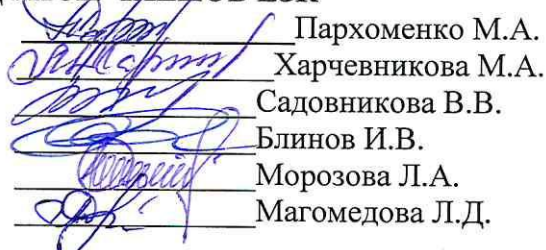 Пархоменко М.А.
Харчевникова М.А.
Садовникова В.В.
Блинов И.В.
Морозова Л.А.
Магомедова Л.Д.